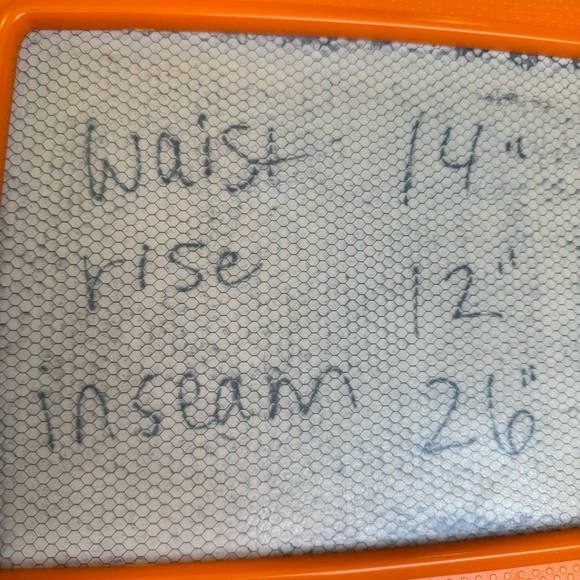 Waist 14"
rise 12"
inseam 26"